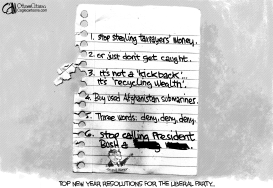 CaglecCartoons.com
1. stop stealing taxpayers' money.
2. or just don't get caught.
3. it's not a "kickback"...
it's "recycling wealth".
4. Buy used Afghanistan submarines.
5. Three words: deny, deny, deny.
6. stop calling President
Bush a
TOP NEW YEAR RESOLUTIONS FOR THE LIBERAL PARTY...